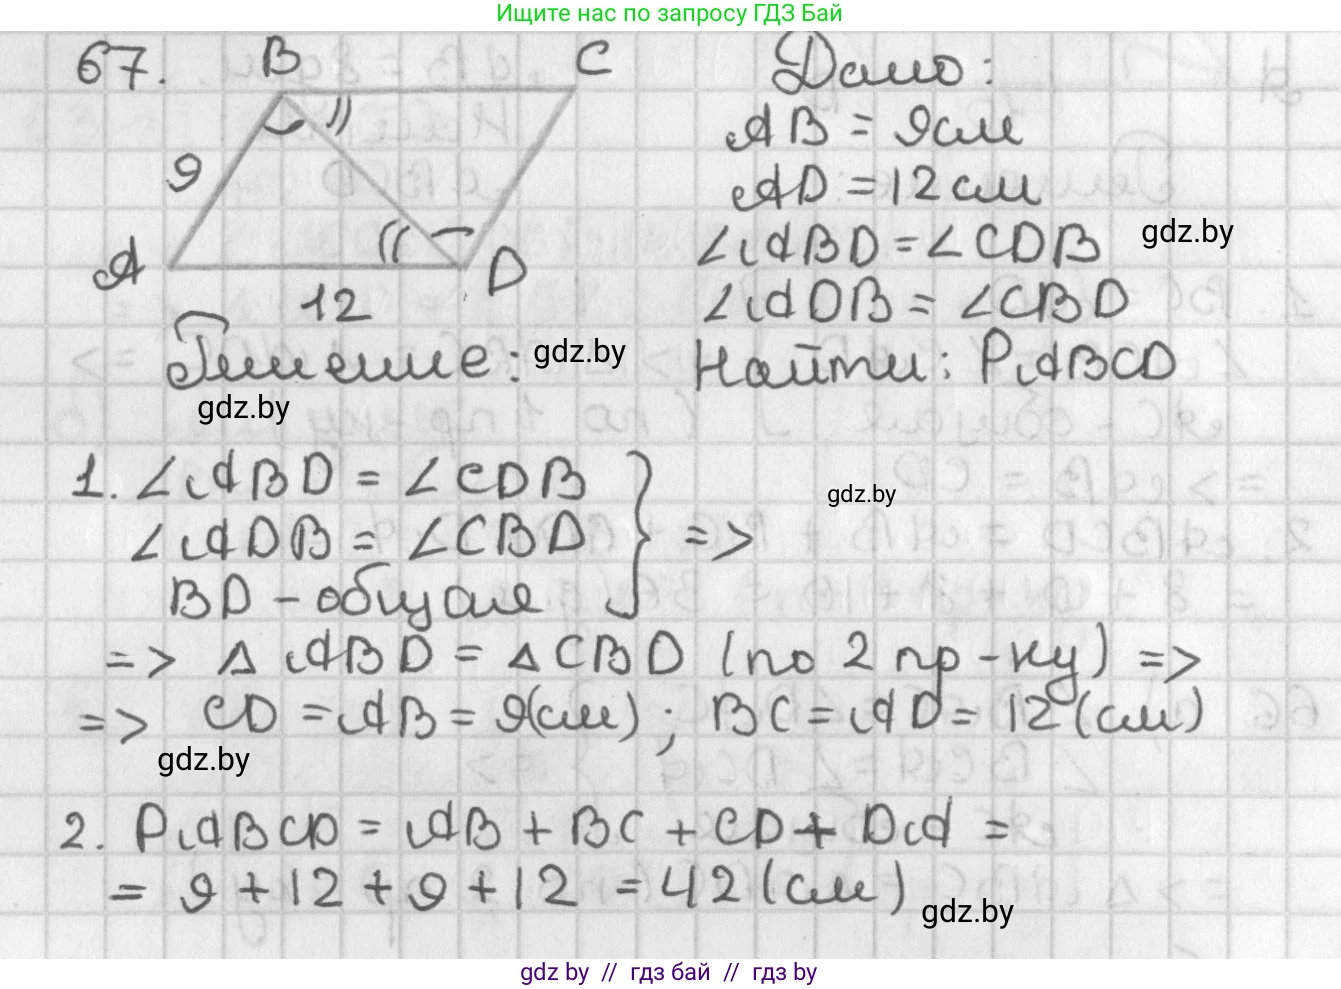 Ищите нас по запросу ГДЗ Бай
67.
B
C
Дано:
9
AB = 9см
AD = 12 см
gdz.by
∠ABD = ∠CDB
A
D
12
∠ADB = ∠CBD
Решение:
gdz.by
Найти: PABCD
gdz.by
1. ∠ABD = ∠CDB
gdz.by
∠ADB = ∠CBD } =>
BD - общая
=> △ ABD = △ CBD (по 2 пр-ку) =>
=> CD = AB = 9(см); BC = AD = 12(см)
gdz.by
2. PABCD = AB + BC + CD + DA =
= 9 + 12 + 9 + 12 = 42 (см)
gdz.by
gdz by // гдз бай // гдз by